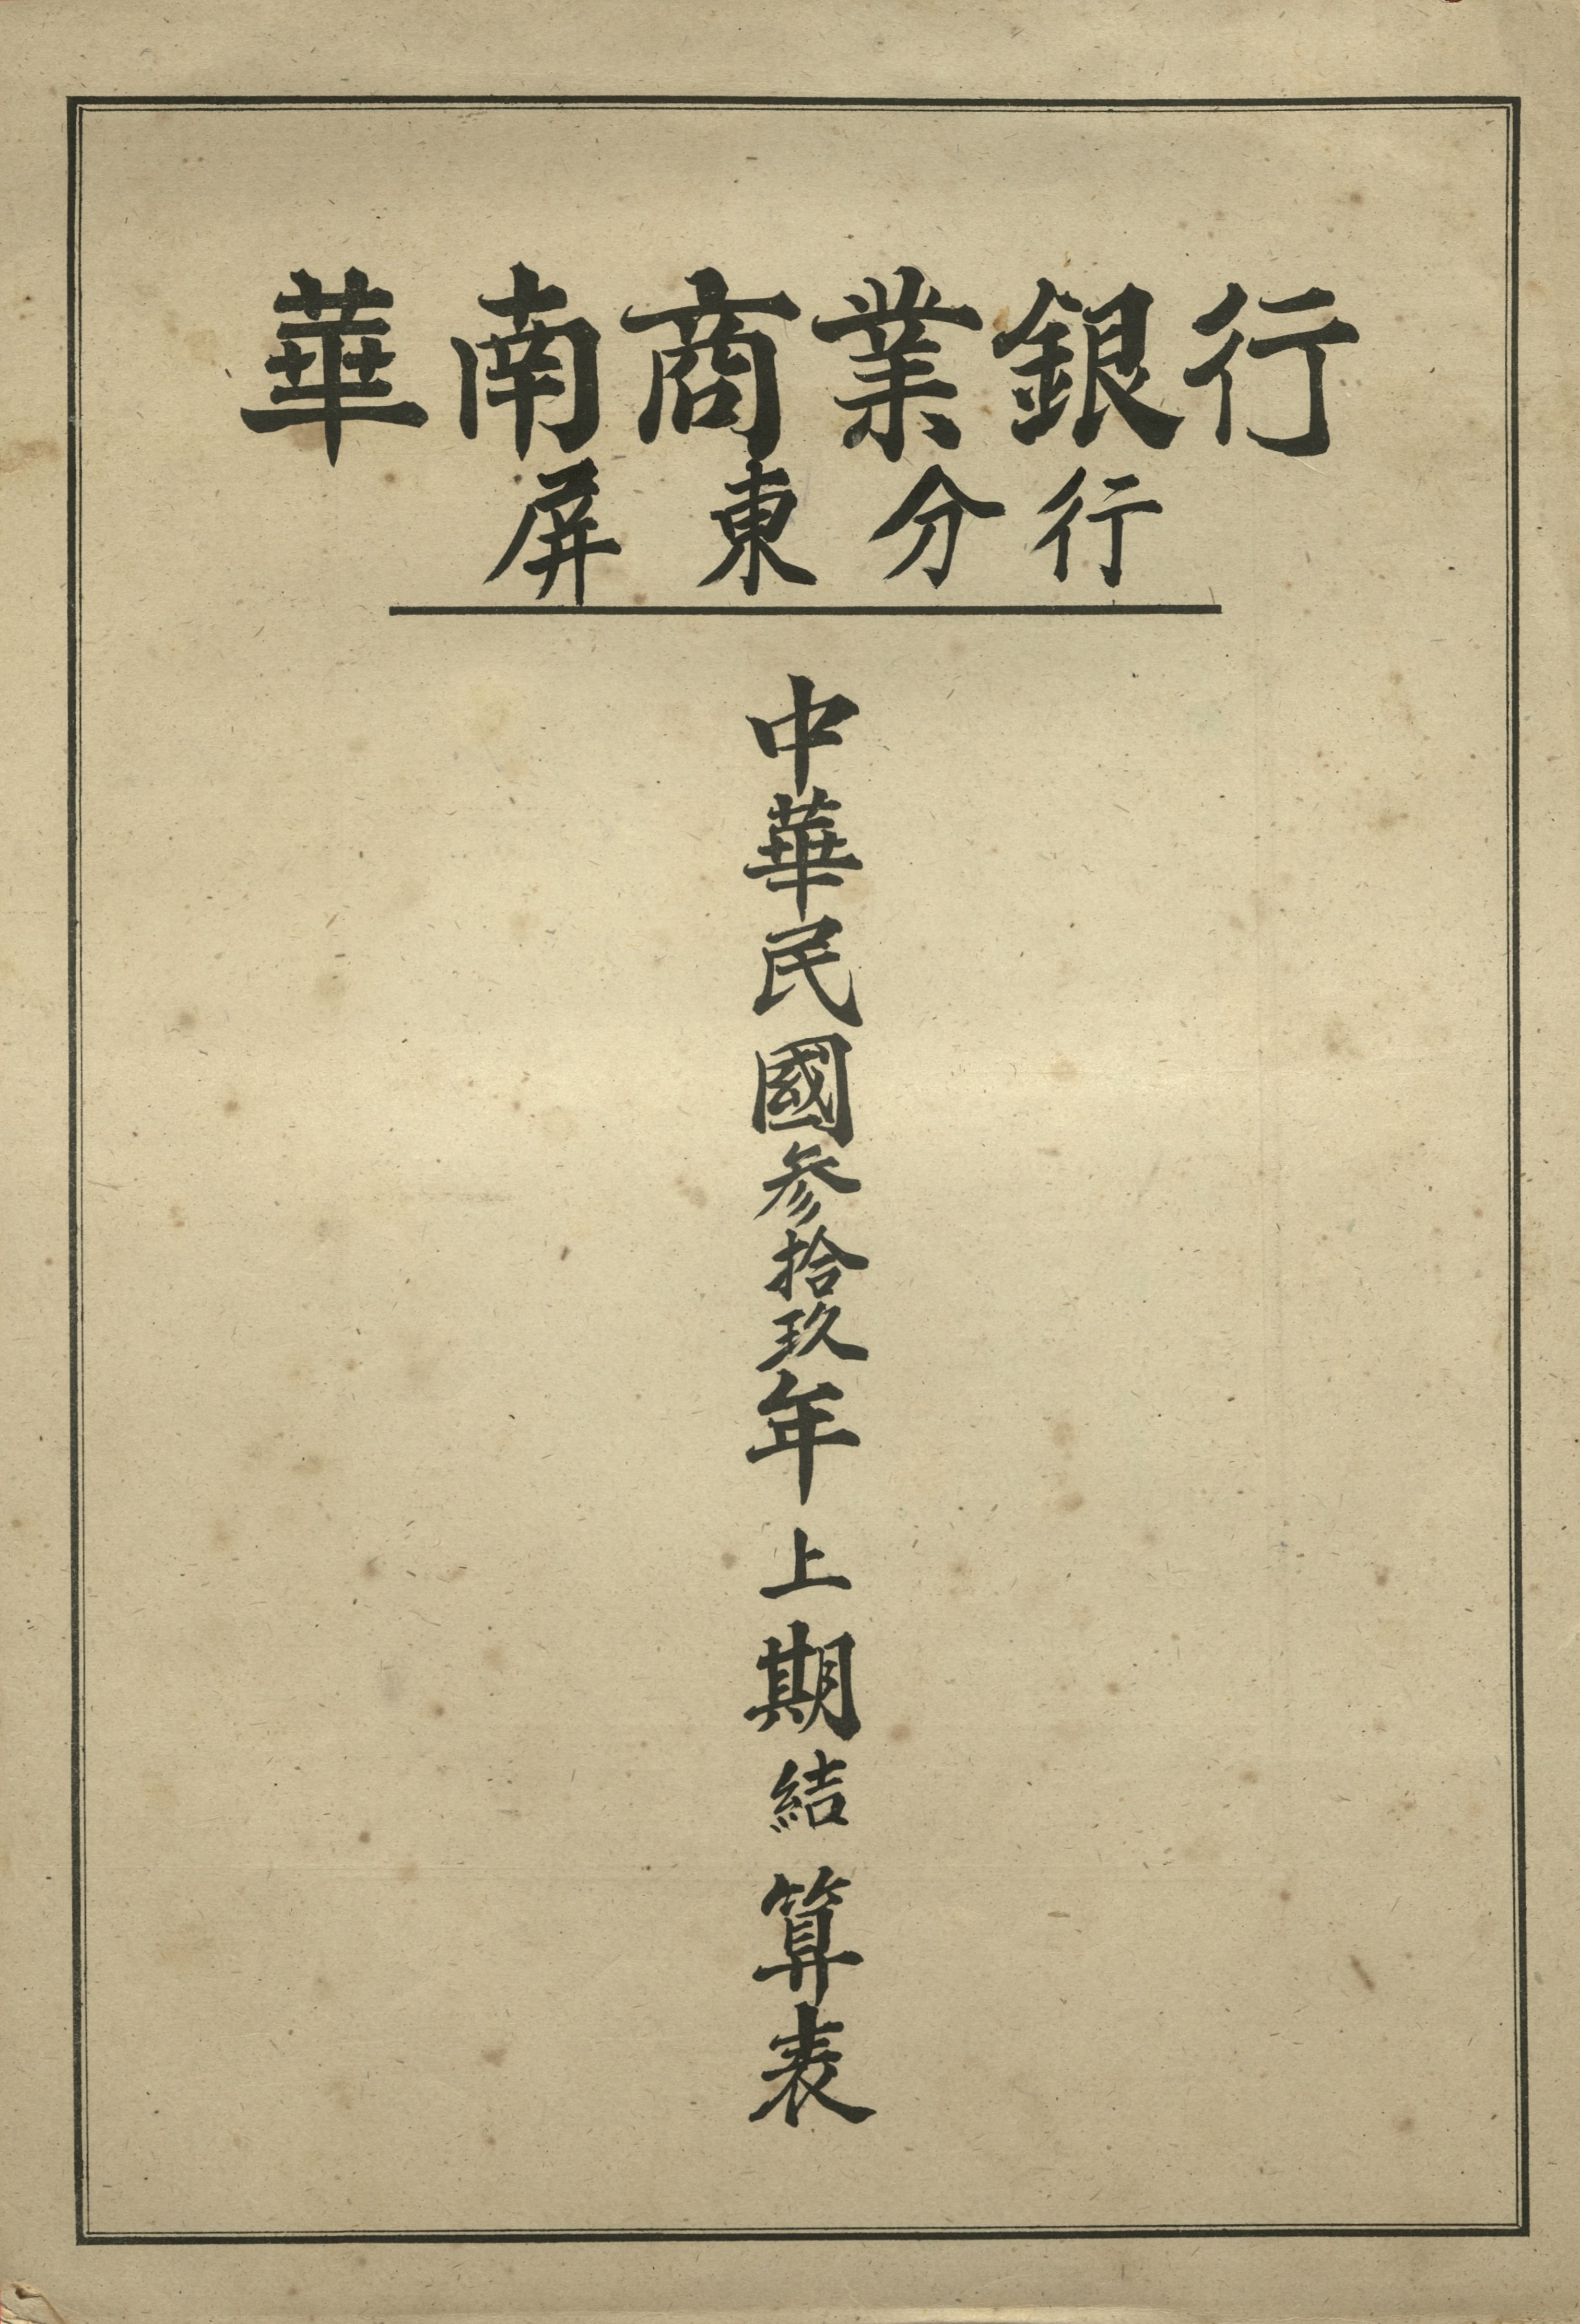 華南商業銀行
屏東分行
中華民國参拾玖年上期結算表